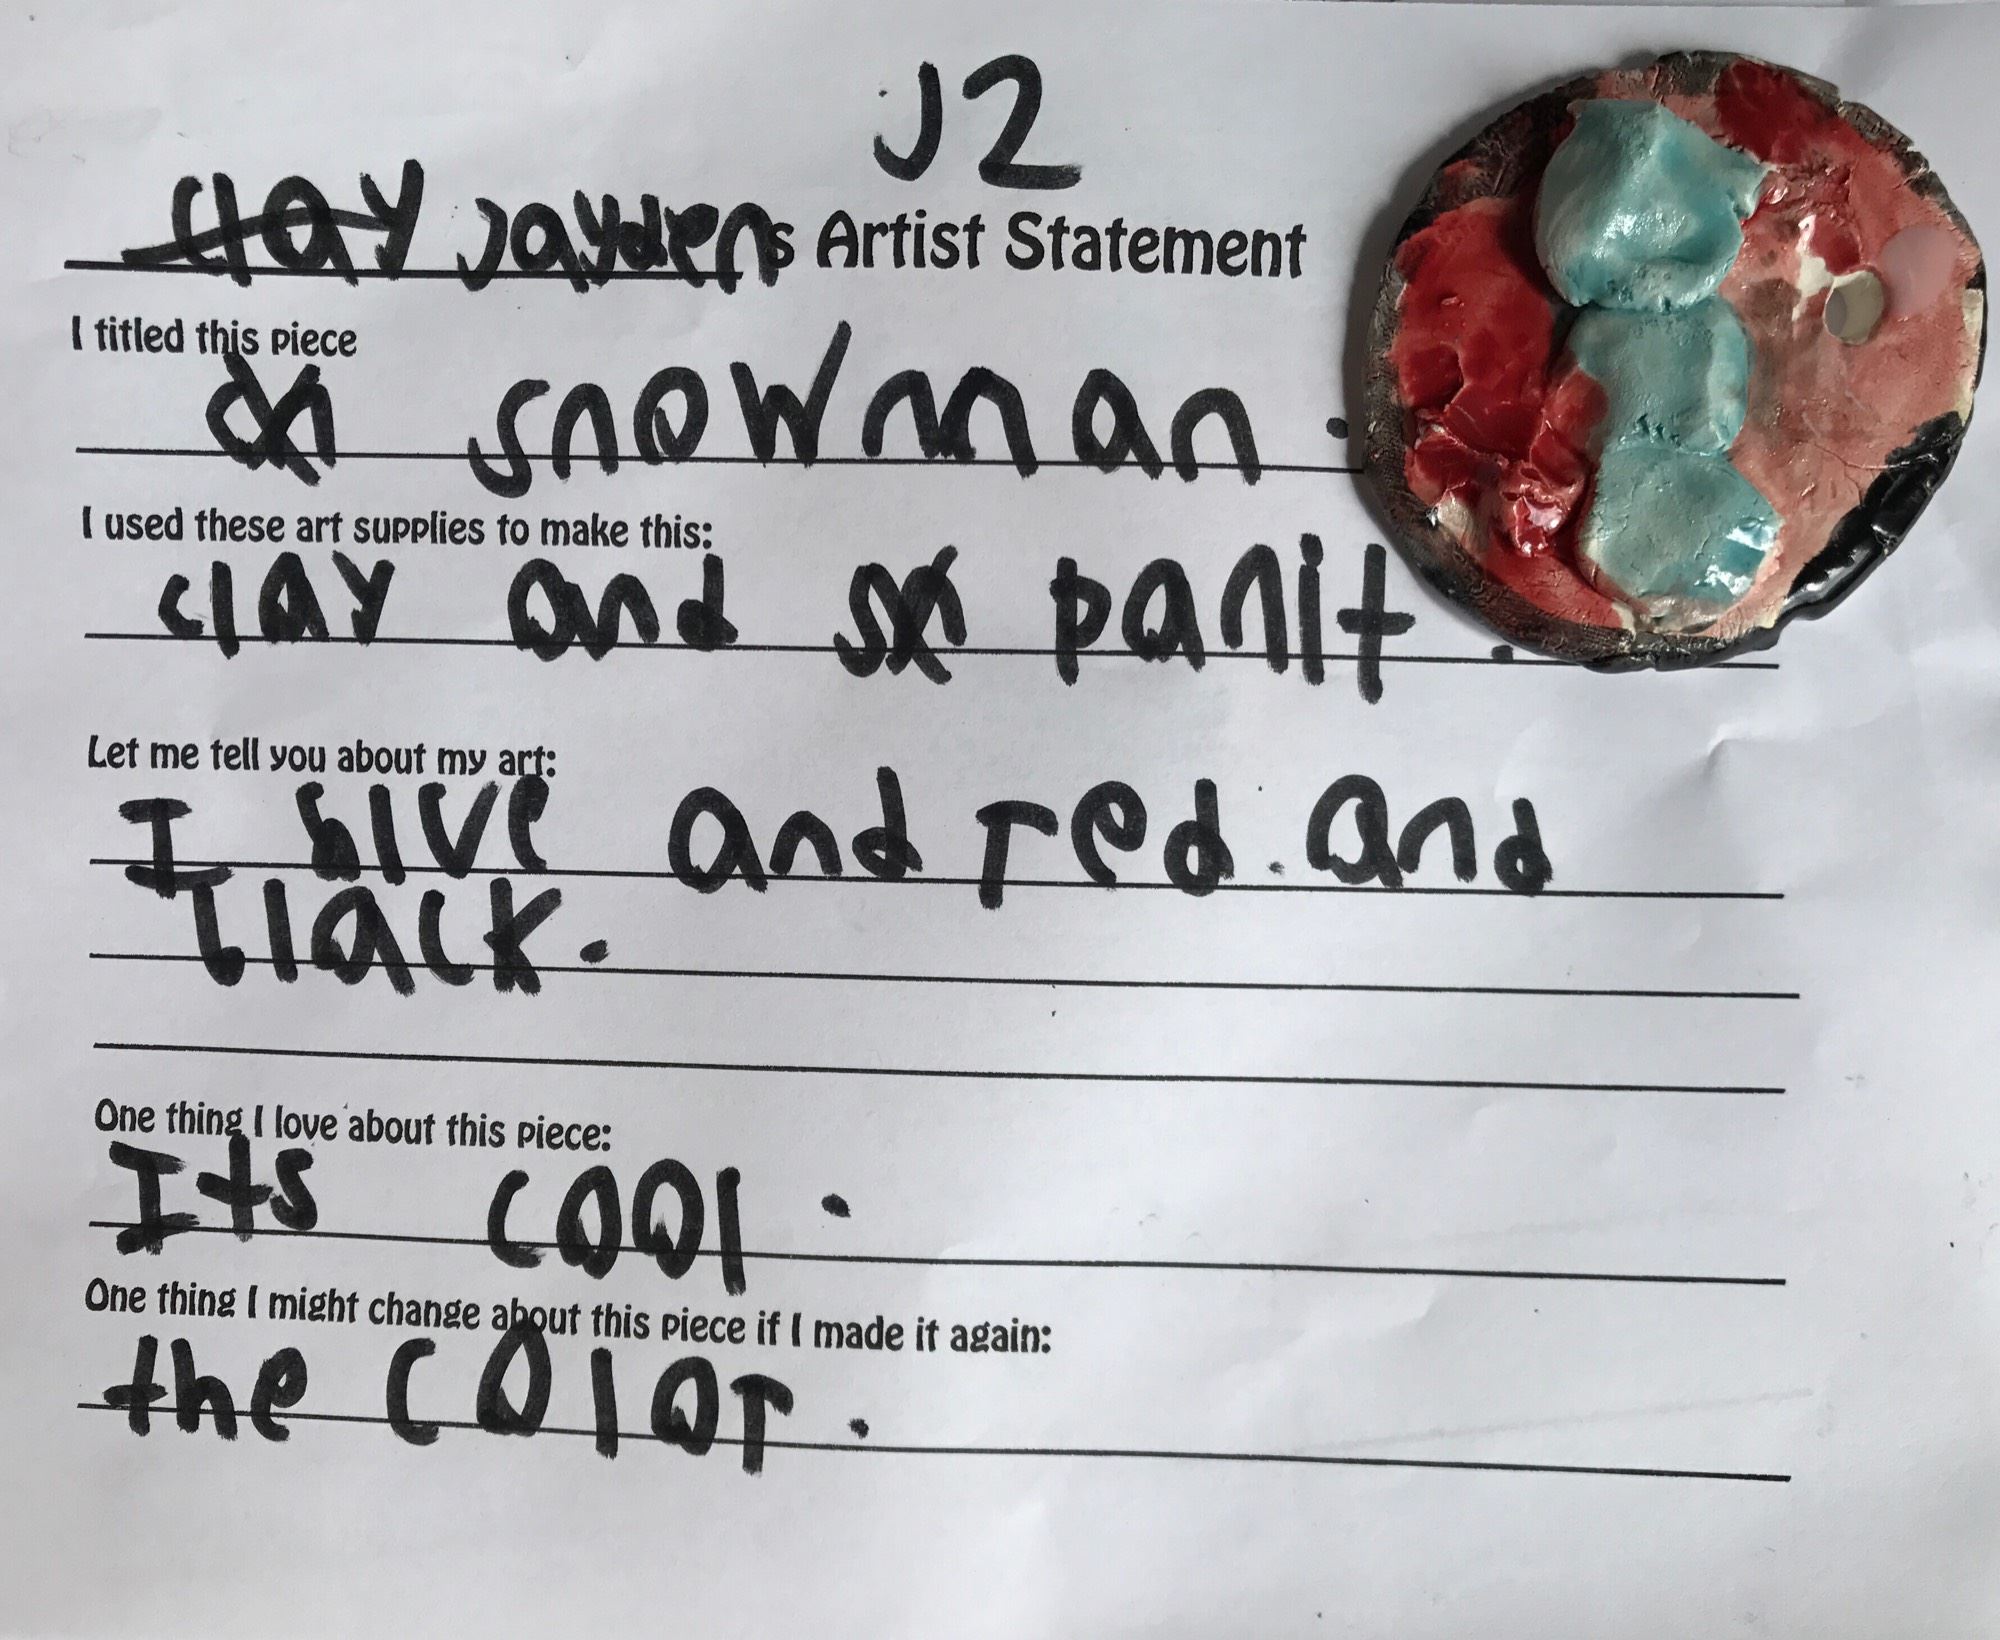 J2
clay Jaydens Artist Statement
I titled this piece
snowman.
I used these art supplies to make this:
clay and panit.
Let me tell you about my art:
I blue and red. and
black.
One thing I love about this piece:
Its cool.
One thing I might change about this piece if I made it again:
the color.